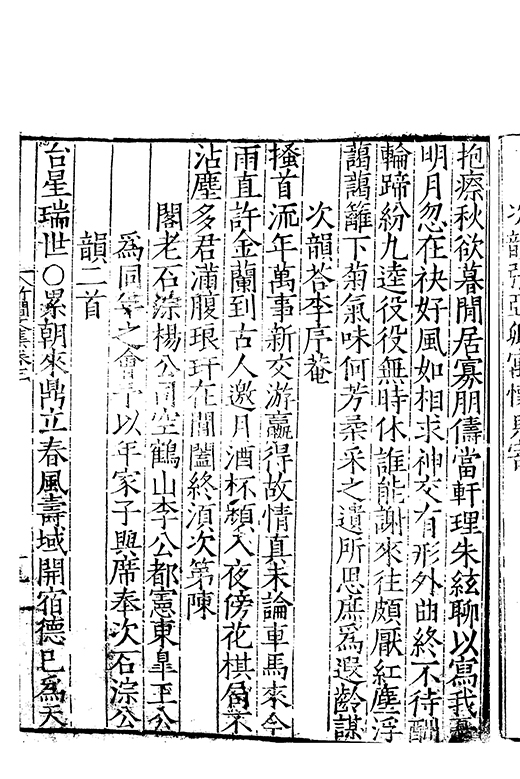 次韻張亞卿寓懷見寄
抱瘵秋欲暮閒居寡朋儔當軒理朱絃聊以寫我憂
明月忽在袂好風如相求神交有形外曲終不待酬
輪蹄紛九逵役役無時休誰能謝來往頗厭紅塵浮
藹藹籬下菊氣味何芳柔采之遺所思庶為遐齡謀
次韻答李序菴
搔首流年萬事新交游贏得故情真未論車馬來今
雨直許金蘭到古人邀月酒杯頻入夜傍花棋局不
沾塵多君滿腹琅玕在閶闔終須次第陳
閣老石淙楊公司空鶴山李公都憲東臯王公
為同年之會予以年家子與席奉次石淙公
韻二首
台星瑞世○累朝來鼎立春風壽域開宿德已為天